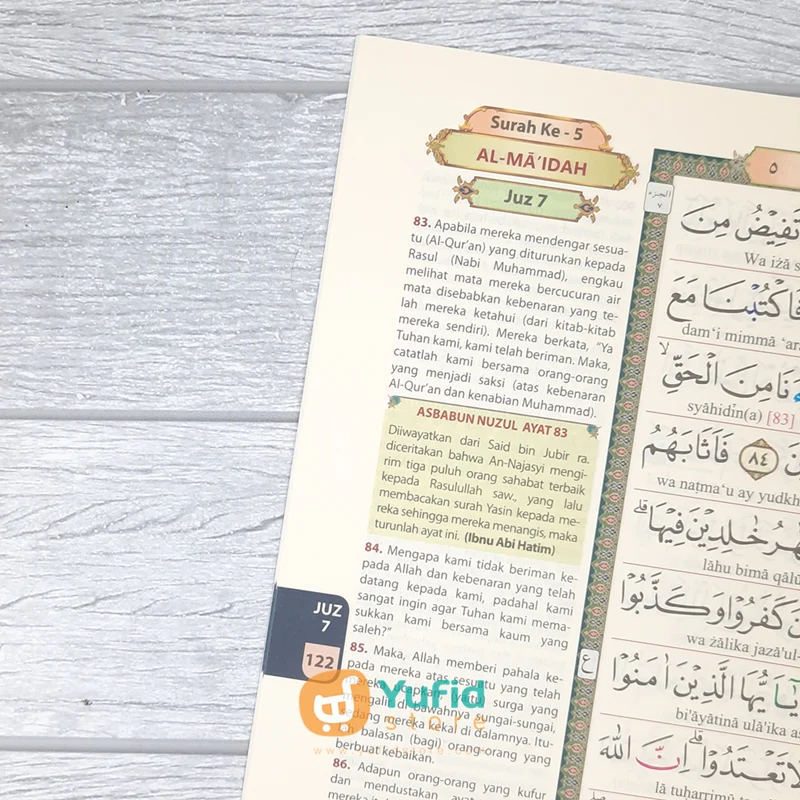 Surah Ke - 5
AL-MĀ'IDAH
Juz 7
83. Apabila mereka mendengar sesua-
tu (Al-Qur'an) yang diturunkan kepada
Rasul (Nabi Muhammad), engkau
melihat mata mereka bercucuran air
mata disebabkan kebenaran yang te-
lah mereka ketahui (dari kitab-kitab
mereka sendiri). Mereka berkata, "Ya
Tuhan kami, kami telah beriman. Maka,
catatlah kami bersama orang-orang
yang menjadi saksi (atas kebenaran
Al-Qur'an dan kenabian Muhammad).
ASBABUN NUZUL AYAT 83
Diiwayatkan dari Said bin Jubir ra.
diceritakan bahwa An-Najasyi mengi-
rim tiga puluh orang sahabat terbaik
kepada Rasulullah saw., yang lalu
membacakan surah Yasin kepada me-
reka sehingga mereka menangis, maka
turunlah ayat ini. (Ibnu Abi Hatim)
84. Mengapa kami tidak beriman ke-
pada Allah dan kebenaran yang telah
datang kepada kami, padahal kami
sangat ingin agar Tuhan kami mema-
sukkan kami bersama kaum yang
saleh?"
85. Maka, Allah memberi pahala ke-
pada mereka atas sesuatu yang telah
mereka ucapkan, yaitu surga yang
mengalir di bawahnya sungai-sungai,
sedang mereka kekal di dalamnya. Itu-
lah balasan (bagi) orang-orang yang
berbuat kebaikan.
86. Adapun orang-orang yang kufur
dan mendustakan
JUZ
7
122
Yufid
store
٥
الجزء
٧
تَفِيْضُ مِنَ
Wa iżā
فَاكْتُبْنَا مَعَ
dam'i mimmā
نَا مِنَ الْحَقِّۙ
syāhidīn(a) [83]
٨٤ فَاَثَابَهُمُ
wa naṭma'u ay
خٰلِدِيْنَ فِيْهَاۗ
lāhu bimā
كَفَرُوْا وَكَذَّبُوْا
wa żālika jazā'ul-
ع
يٰٓاَيُّهَا الَّذِيْنَ اٰمَنُوْا
bi'āyātinā ulā'ika
لَا تَعْتَدُوْاۗ اِنَّ اللّٰهَ
lā tuḥarrimū